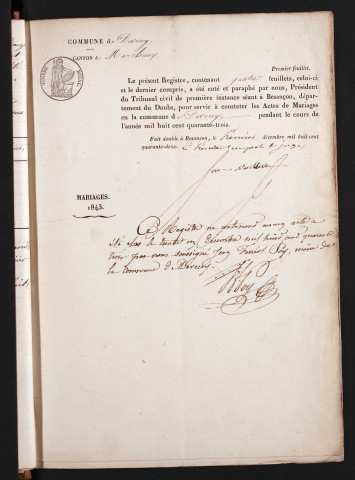 COMMUNE de
CANTON de Marchaux
Premier feuillet.
Le présent Registre, contenant quatre feuillets, celui-ci
et le dernier compris, a été coté et paraphé par nous, Président
du Tribunal civil de première instance séant à Besançon, dépar-
tement du Doubs, pour servir à constater les Actes de Mariages
en la commune d pendant le cours de
l'année mil huit cent quarante-trois.
Fait double à Besançon, le premier décembre mil huit cent
quarante-deux.
MARIAGES.
1843.
Ce Registre ne contenant aucun acte a
été clos le trente un Décembre mil huit cent quarante
trois par nous soussigné Jean François maire de
la commune de